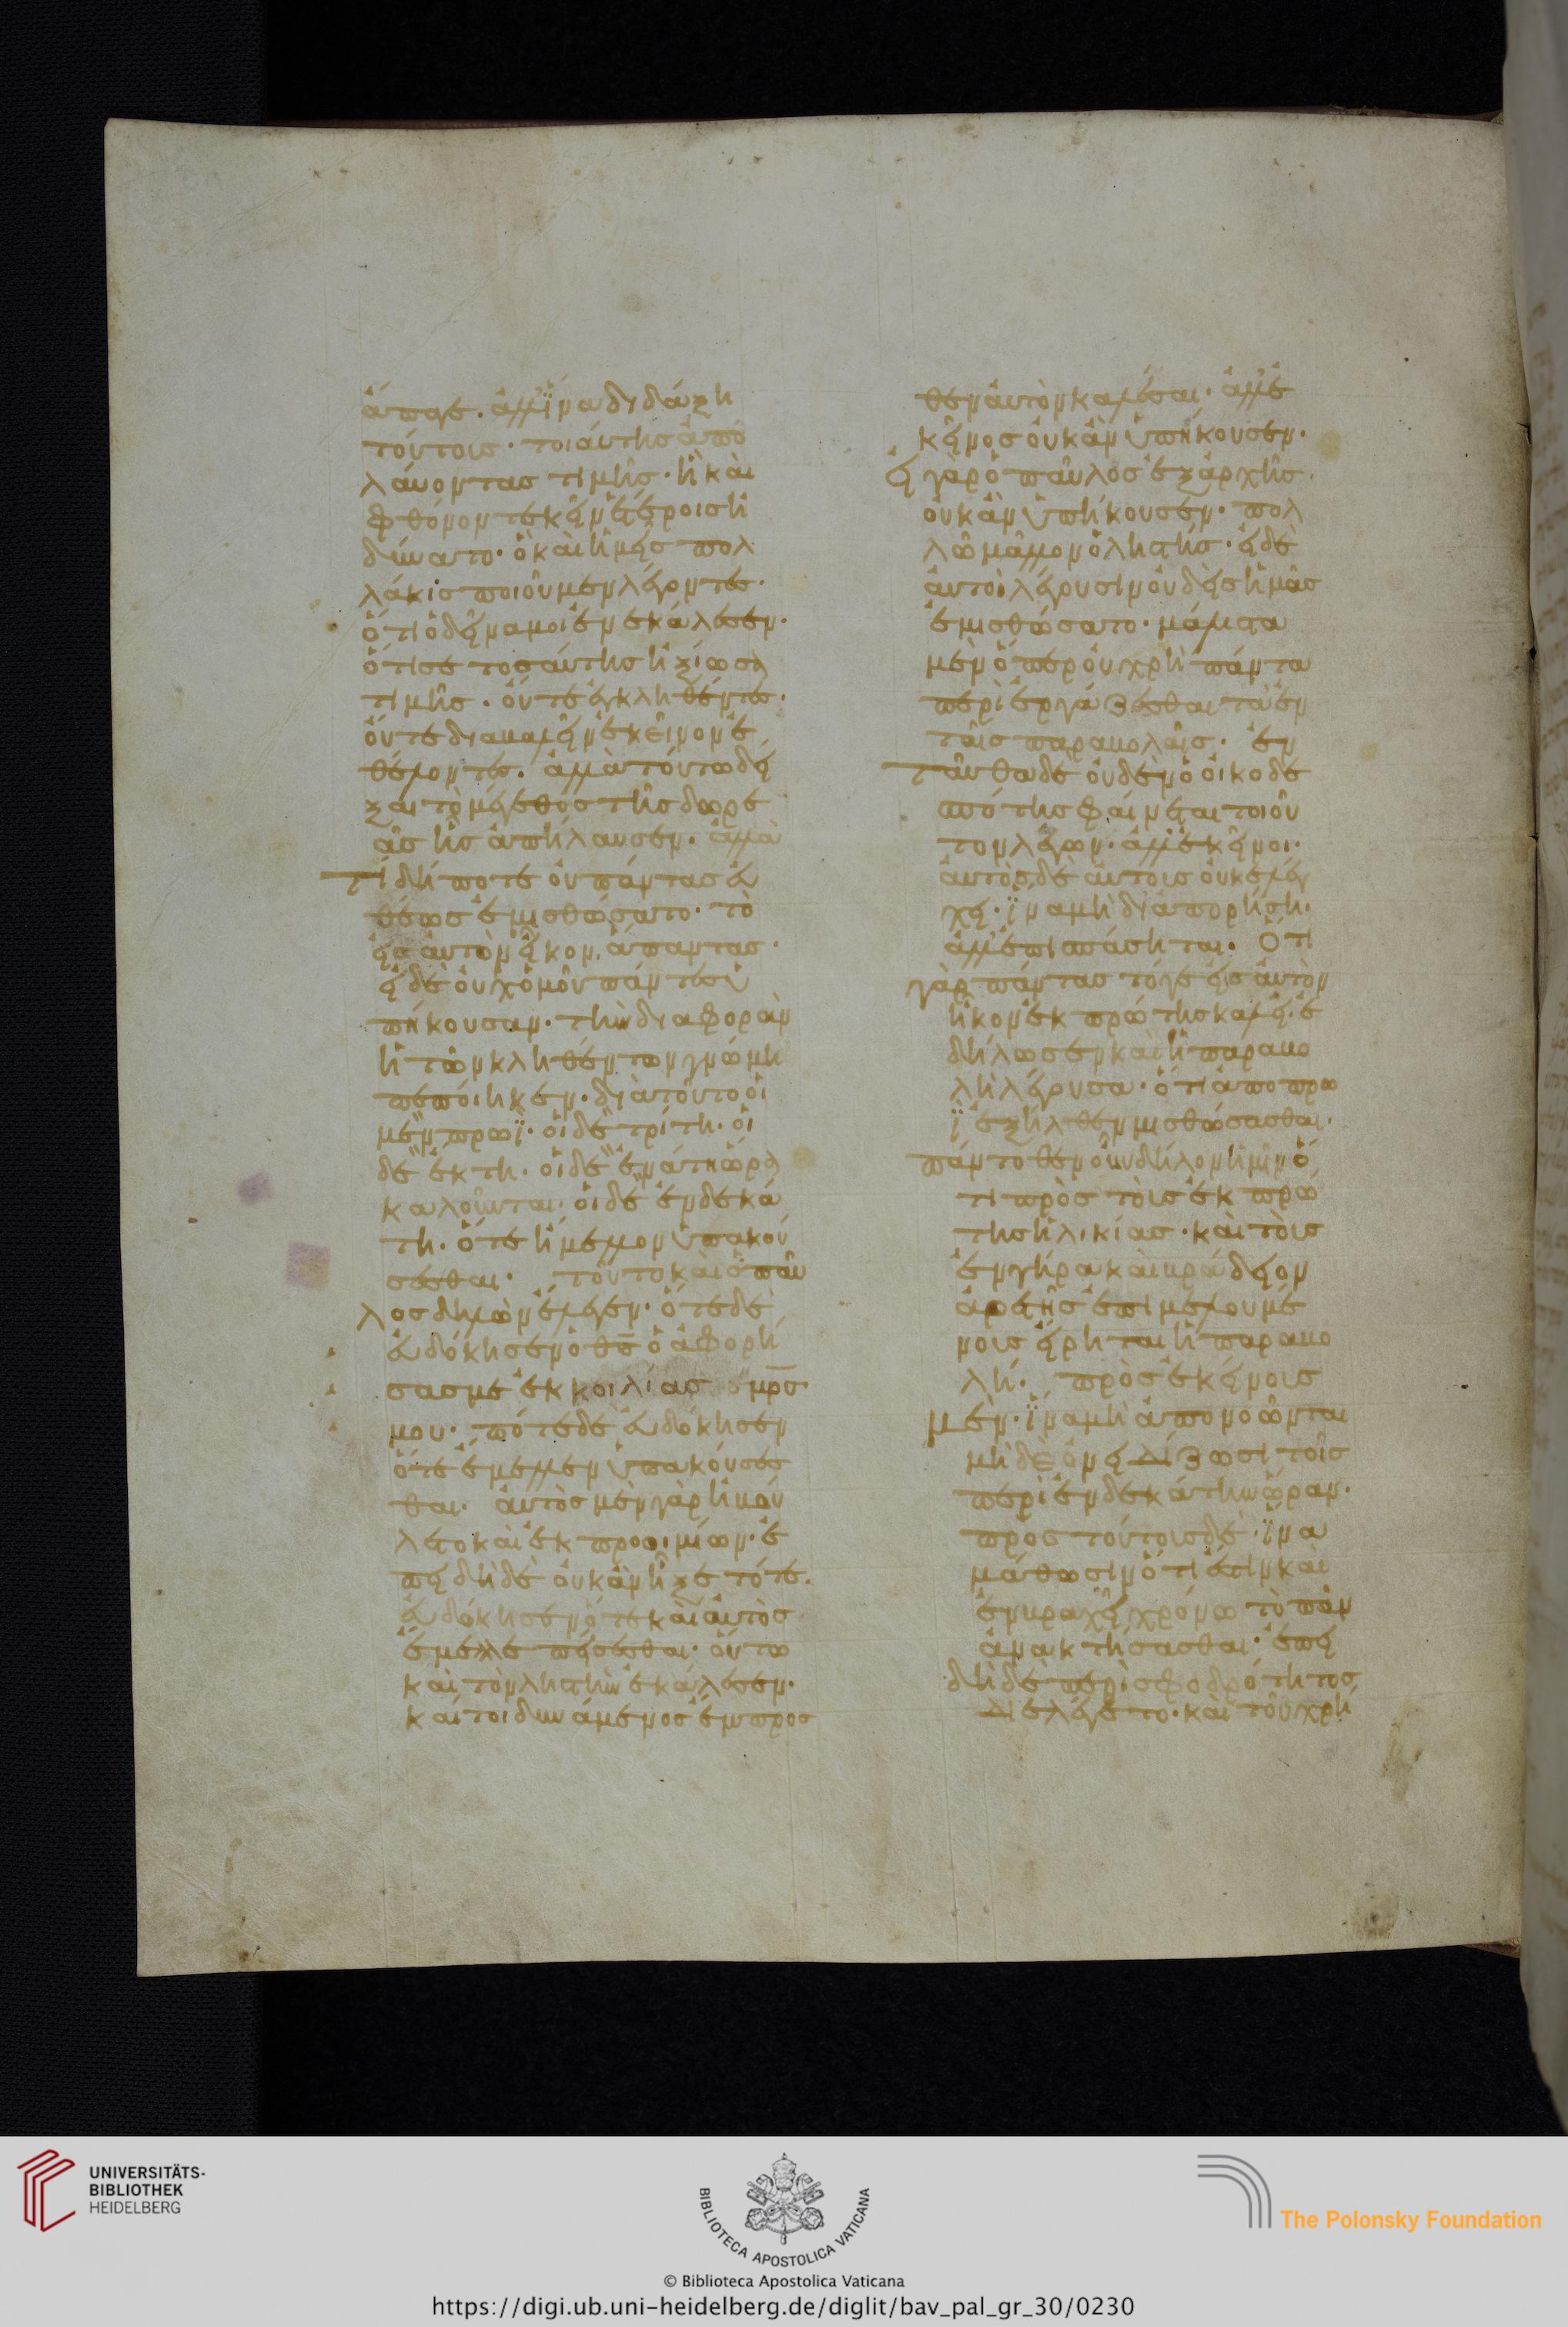 ἄπαγε. ἀλλ' ἵνα διδάξη
τούτοις. τοιαύτης ἀπο
λαύοντας τιμῆς. ἣ καὶ
φθόνον τεκεῖν ἑτέροις ἠ
δύνατο. ὃ καὶ ἡμεῖς πολ
λάκις ποιοῦμεν λέγοντες.
ὅτι ὁ δεῖνα μοι ἐνεκάλεσεν.
ὅτι σε τοσαύτης ἠξίωσα
τιμῆς. οὔτε ἐγκληθέντες.
οὔτε διαβαλεῖν ἐκεῖνον ἐ
θέλοντες. ἀλλὰ τούτω δεῖ
ξαι τὸ μέγεθος τῆς δωρε
ᾶς ἧς ἀπήλαυσεν. ἀλλὰ
τί δήποτε οὐ πάντας εὐ
θέως ἐμισθώσατο. τὸ
εἰς αὐτὸν ἧκον, ἅπαντας.
εἰ δὲ οὐχ ὁμοῦ πάντες ὑ
πήκουσαν. τὴν διαφορὰν
ἡ τῶν κληθέντων γνώμη
πεποίηκεν. διὰ τοῦτο οἱ
μὲν πρωΐ. οἱ δὲ τρίτη. οἱ
δὲ ἕκτη. οἱ δὲ ἐνάτη ὥρα
καλοῦνται. οἱ δὲ ἑνδεκά
τη. ὅτε ἤμελλον ὑπακού
σεσθαι. τοῦτο καὶ ὁ παῦ
λος δηλῶν ἔλεγεν. ὅτε δὲ
εὐδόκησεν ὁ θς ὁ ἀφορί
σας με ἐκ κοιλίας μρς
μου. πότε δὲ εὐδόκησεν
ὅτε ἔμελλεν ὑπακούσεσ
θαι. αὐτὸς μὲν γὰρ ἠβού
λετο καὶ ἐκ προοιμίων. ἐ
πειδὴ δὲ οὐκ ἂν εἶξε τότε.
εὐδόκησεν ὅτε καὶ αὐτὸς
ἔμελλε πείσεσθαι. οὕτω
καὶ τὸν ληστὴν ἐκάλεσεν.
καίτοι δυνάμενος ἔμπροσ
θεν αὐτὸν καλέσαι. ἀλλ' ἐ
κεῖνος οὐκ ἂν ὑπήκουσεν.
εἰ γὰρ ὁ παῦλος ἐξ ἀρχῆς.
οὐκ ἂν ὑπήκουσεν. πολ
λῶ μᾶλλον ὁ ληστής. εἰ δὲ
αὐτοὶ λέγουσιν οὐδεὶς ἡμᾶς
ἐμισθώσατο. μάλιστα
μὲν ὅπερ οὐ χρὴ πάντα
περιεργάζεσθαι τὰ ἐν
ταῖς παραβολαῖς. ἐν
ταῦθα δὲ οὐδὲν ὁ οἰκοδε
σπότης φαίνεται τοιοῦ
τον λέγων. ἀλλ' ἐκεῖνοι.
αὐτὸς δὲ αὐτοὺς οὐκ ἐλέγ
χει. ἵνα μὴ διαπορήση.
ἀλλ' ἐπισπάσηται. Ὅτι
γὰρ πάντας τόγε εἰς αὐτὸν
ἧκον ἐκ πρώτης καλεῖ. ἐ
δήλωσεν καὶ ἡ παραβο
λὴ λέγουσα. ὅτι ἀπο πρω
ῒ ἐξῆλθεν μισθώσασθαι.
πάντοθεν οὖν δῆλον ἡμῖν ὅ
τι πρὸς τοὺς ἐκ πρώ
της ἡλικίας. καὶ τοὺς
ἐν γήρα καὶ βράδειον
ἀρετῆς ἐπιμελουμέ
νους εἴρηται ἡ παραβο
λή. πρὸς ἐκείνους
μὲν. ἵνα μὴ ἀπονοῶνται
μὴ δὲ ὀνειδίζωσι τοῖς
περὶ ἑνδεκάτην ὥραν.
πρὸς τούτους δὲ. ἵνα
μάθωσιν ὅτι ἔστιν καὶ
ἐν βραχεῖ χρόνω τὸ πᾶν
ἀνακτήσασθαι. ἐπει
δὴ δὲ περὶ σφοδρότητος
διελέγετο. καὶ τοῦ χρή
UNIVERSITÄTS-
BIBLIOTHEK
HEIDELBERG
BIBLIOTECA APOSTOLICA VATICANA
The Polonsky Foundation
© Biblioteca Apostolica Vaticana
https://digi.ub.uni-heidelberg.de/diglit/bav_pal_gr_30/0230